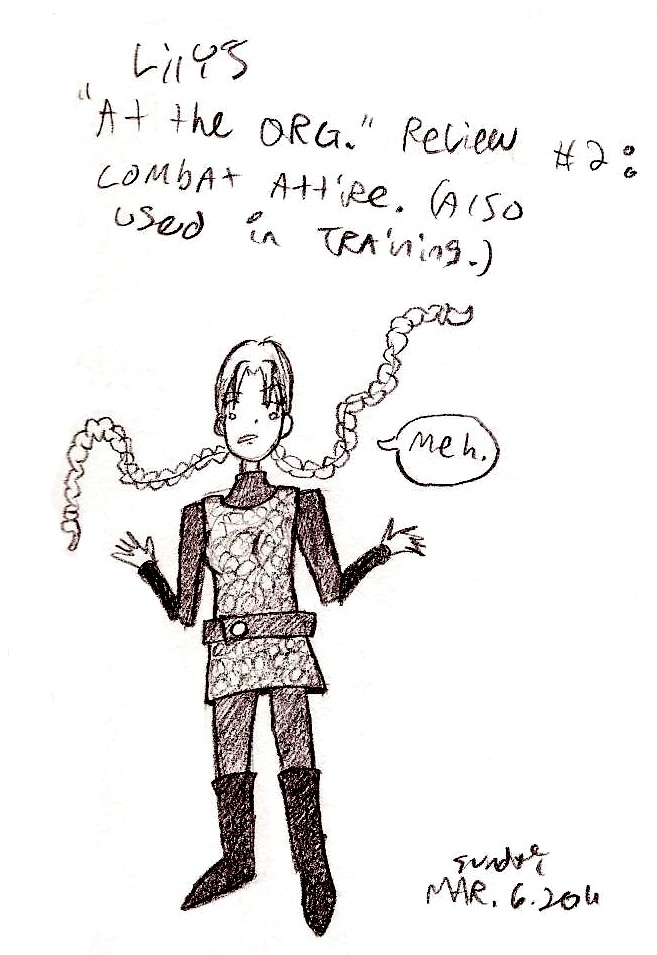 Lily's
"At the ORG." Review #2:
Combat Attire. (Also
used in Training.)
Meh.
Sunday
MAR. 6. 2011